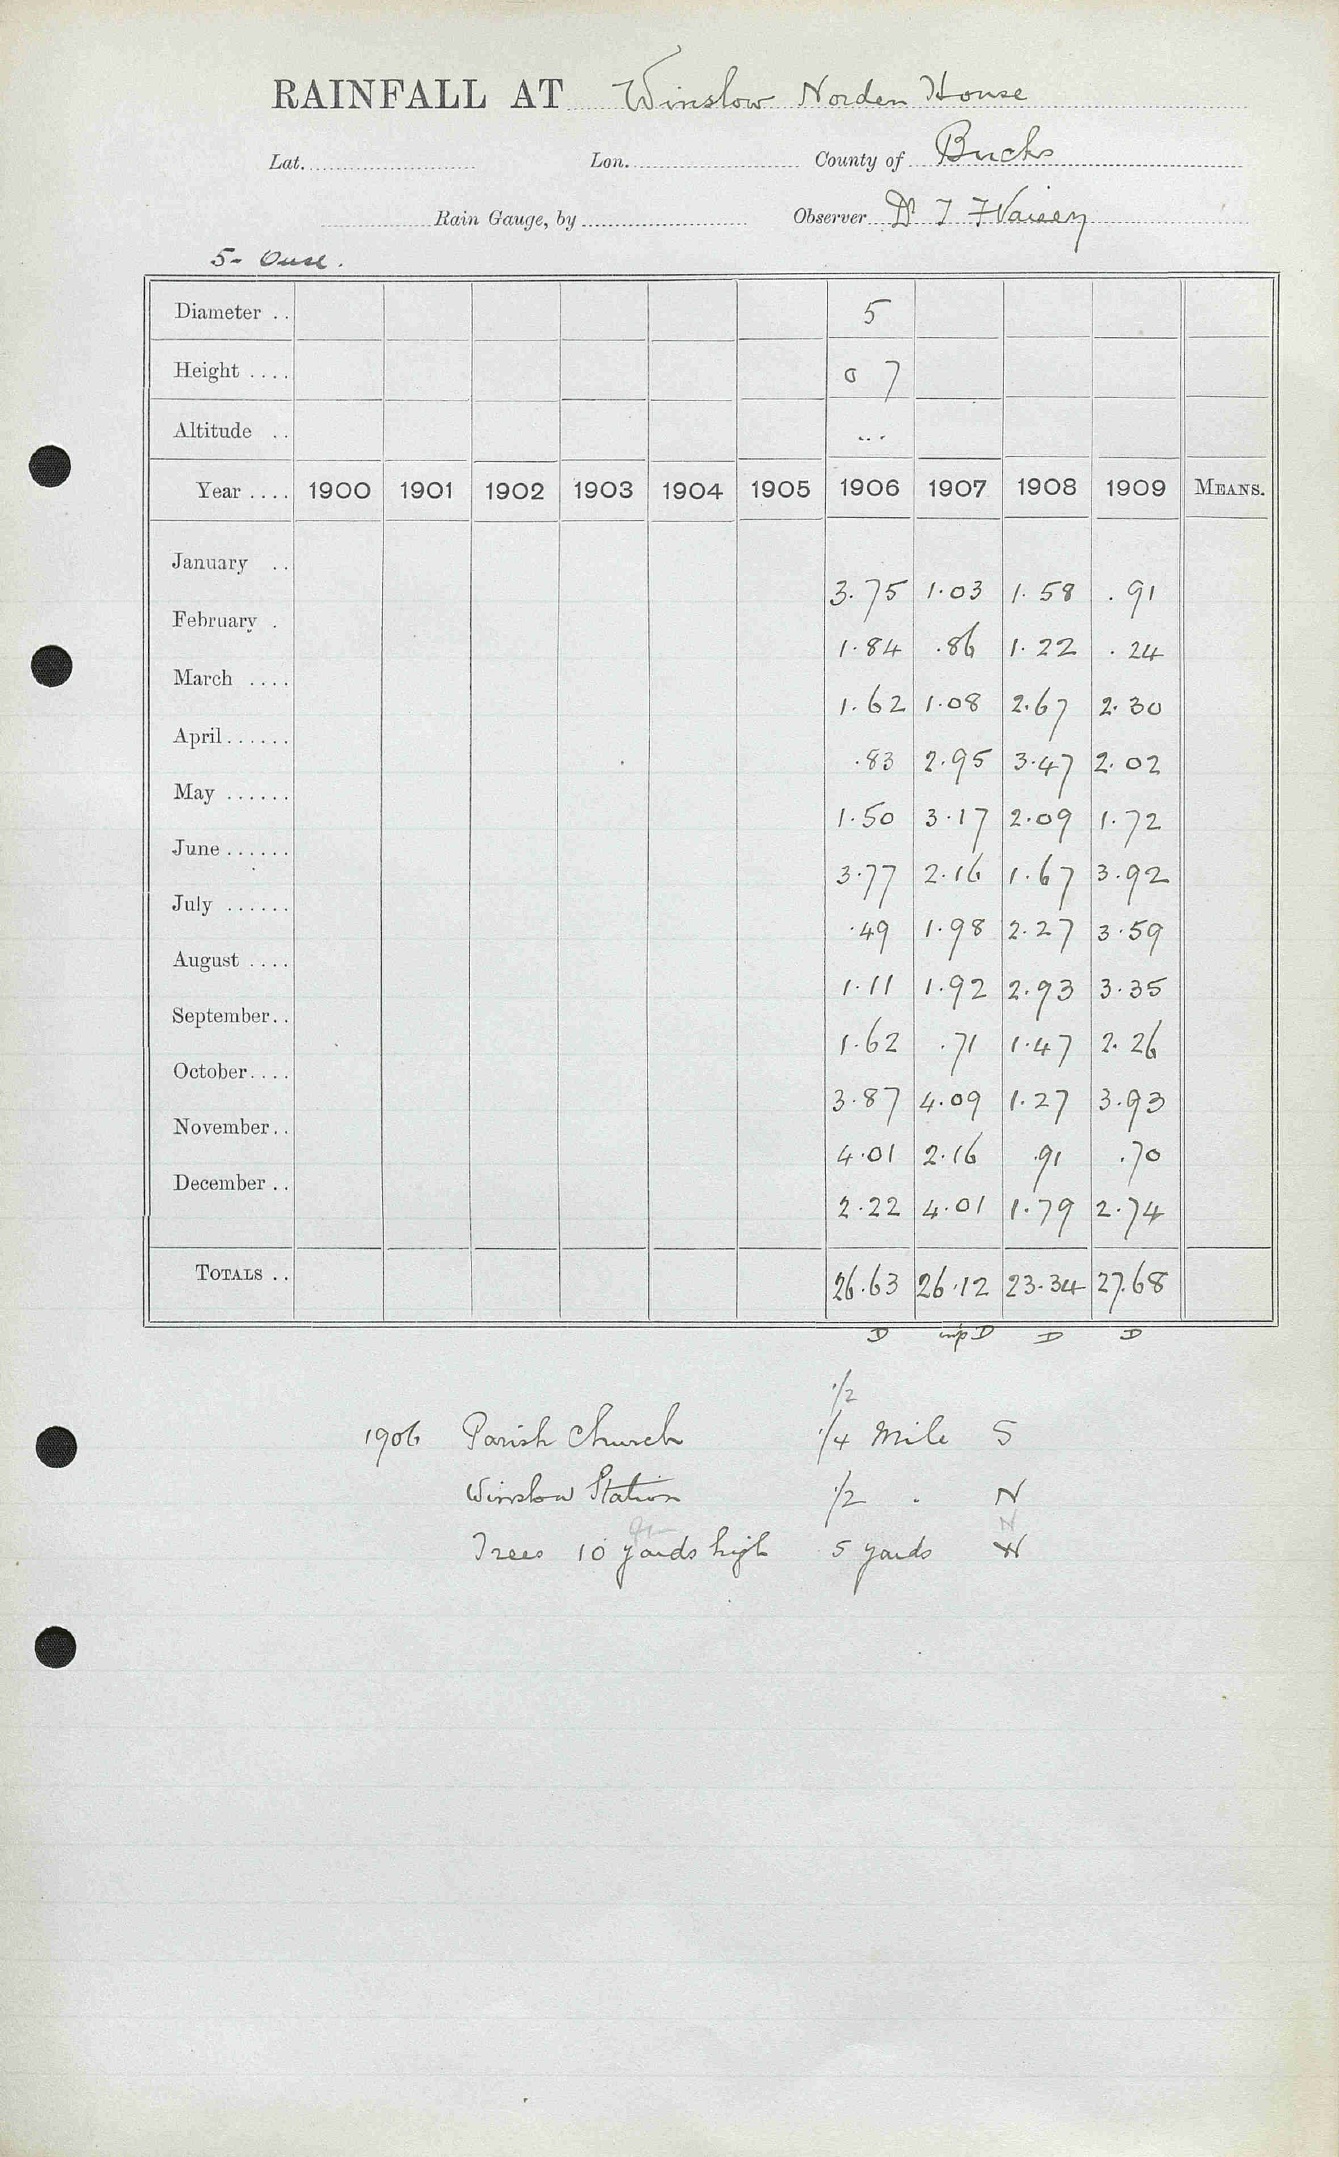 RAINFALL AT Winslow Norden House
Lat. Lon. County of Bucks
Rain Gauge, by Observer Dr T F Vaisey
5- Ouse.
Diameter .. 5
Height .... 0 7
Altitude .. ...
Year .... 1900 1901 1902 1903 1904 1905 1906 1907 1908 1909 MEANS.
January .. 3.75 1.03 1.58 .91
February . 1.84 .86 1.22 .24
March .... 1.62 1.08 2.67 2.30
April...... .83 2.95 3.47 2.02
May ...... 1.50 3.17 2.09 1.72
June ...... 3.77 2.16 1.67 3.92
July ...... .49 1.98 2.27 3.59
August .... 1.11 1.92 2.93 3.35
September.. 1.62 .71 1.47 2.26
October.... 3.87 4.09 1.27 3.93
November.. 4.01 2.16 .91 .70
December .. 2.22 4.01 1.79 2.74
TOTALS .. 26.63 26.12 23.34 27.68
D imp D D D
1/2
1906 Parish Church 1/4 Mile S
Winslow Station 1/2 . N
Trees 10 yards high 5 yards